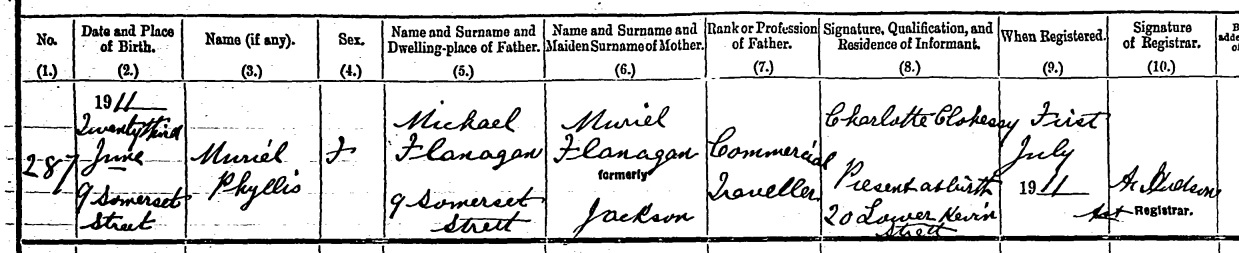 No.
(1.)
Date and Place
of Birth.
(2.)
Name (if any).
(3.)
Sex.
(4.)
Name and Surname and
Dwelling-place of Father.
(5.)
Name and Surname and
Maiden Surname of Mother.
(6.)
Rank or Profession
of Father.
(7.)
Signature, Qualification, and
Residence of Informant.
(8.)
When Registered.
(9.)
Signature
of Registrar.
(10.)
287
1911
Twenty third
June
9 Somerset
Street
Muriel
Phyllis
F
Michael
Flanagan
9 Somerset
Street
Muriel
Flanagan
formerly
Jackson
Commercial
Traveller
Charlotte Clokessy
Present at birth
20 Lower Kevin
Street
First
July
1911
Hudson
Asst Registrar.